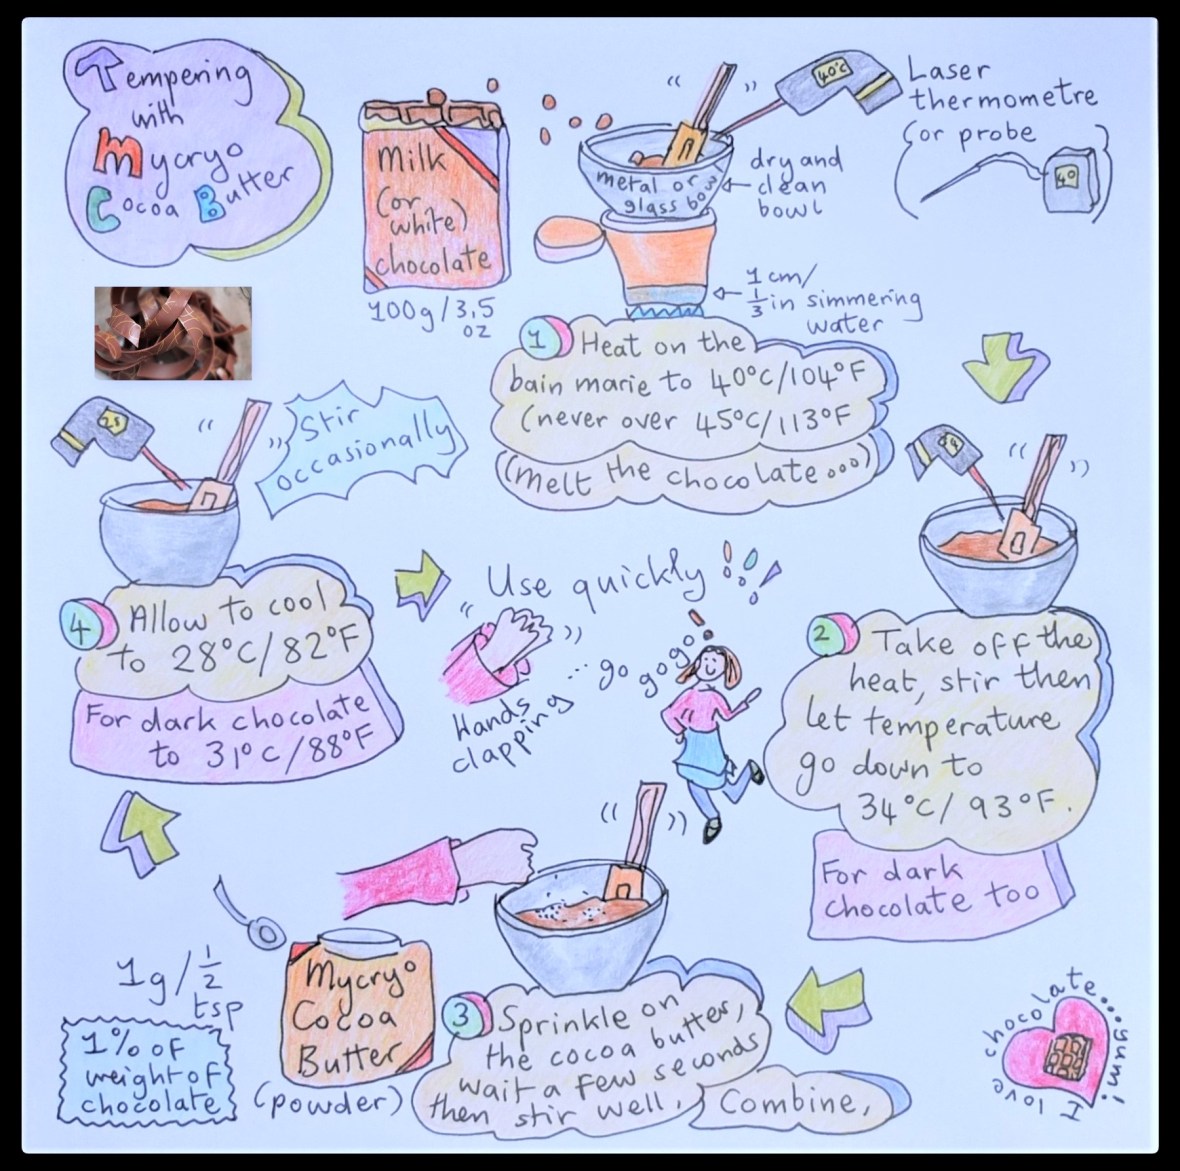 Tempering
with
Mycryo
Cocoa Butter
Milk
(or
white)
chocolate
100g/3.5
oz
40°C
metal or
glass bowl
dry and
clean
bowl
Laser
thermometre
(or probe
40
)
1 cm/
1/3 in simmering
water
1 Heat on the
bain marie to 40°C/104°F
(never over 45°C/113°F
(Melt the chocolate...)
34
2 Take off the
heat, stir then
let temperature
go down to
34°C/93°F.
For dark
chocolate too
Mycryo
Cocoa
Butter
(powder)
1g/1/2
tsp
1% of
weight of
chocolate
3 Sprinkle on
the cocoa butter,
wait a few seconds
then stir well,
Combine,
28
Stir
occasionally
4 Allow to cool
to 28°C/82°F
For dark chocolate
to 31°C/88°F
Use quickly !!!
Hands
clapping
... go go go
I love chocolate...yum!